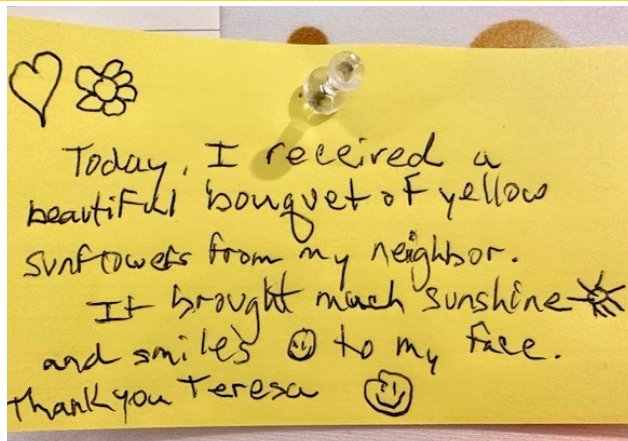 Today, I received a
beautiful bouquet of yellow
sunflowers from my neighbor.
It brought much sunshine
and smiles to my face.
Thank you Teresa